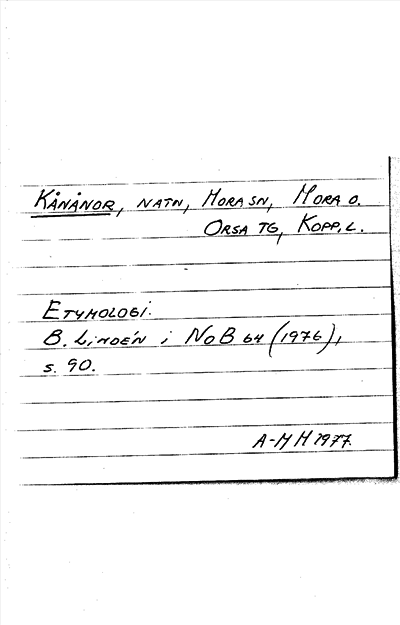 KÅNÅNOR, NATN, MORA SN, MORA O.
ORSA TG, KOPP. L.
ETYMOLOGI.
B. LINDÉN i NoB 64 (1976),
s. 90.
A-M H 1977